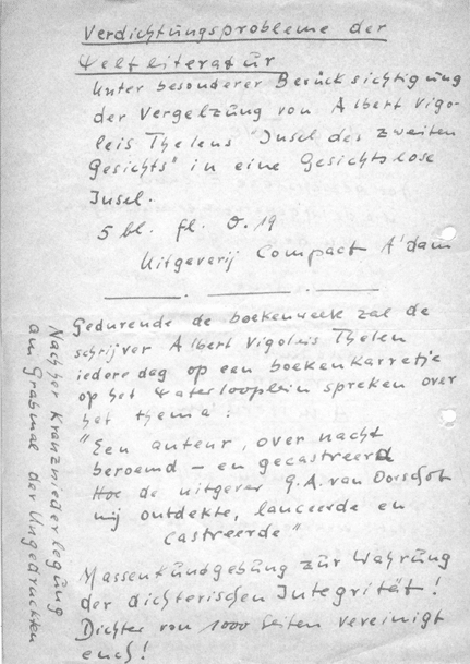 Verdichtungsprobleme der
Weltliteratur
Unter besonderer Berücksichtigung
der Vergelzung von Albert Vigo-
leis Thelens Insel des zweiten
Gesichts" in eine Gesichtslose
Insel.
5 bl. fl. 0.19
Uitgeverij Compact A'dam
Gedurende de boekenweek zal de
schrijver Albert Vigoleis Thelen
iedere dag op een boekenkarretje
op het Waterlooplein spreken over
het thema:
"Een auteur, over nacht
beroemd – en gecastreerd
Hoe de uitgever G.A. van Oorschot
mij ontdekte, lanceerde en
castreerde"
Massenkundgebung zur Wahrung
der dichterischen Integrität!
Dichter von 1000 Seiten vereinigt
euch!
Nachher Kranzniederlegung
am Grabmal der Ungedruckten